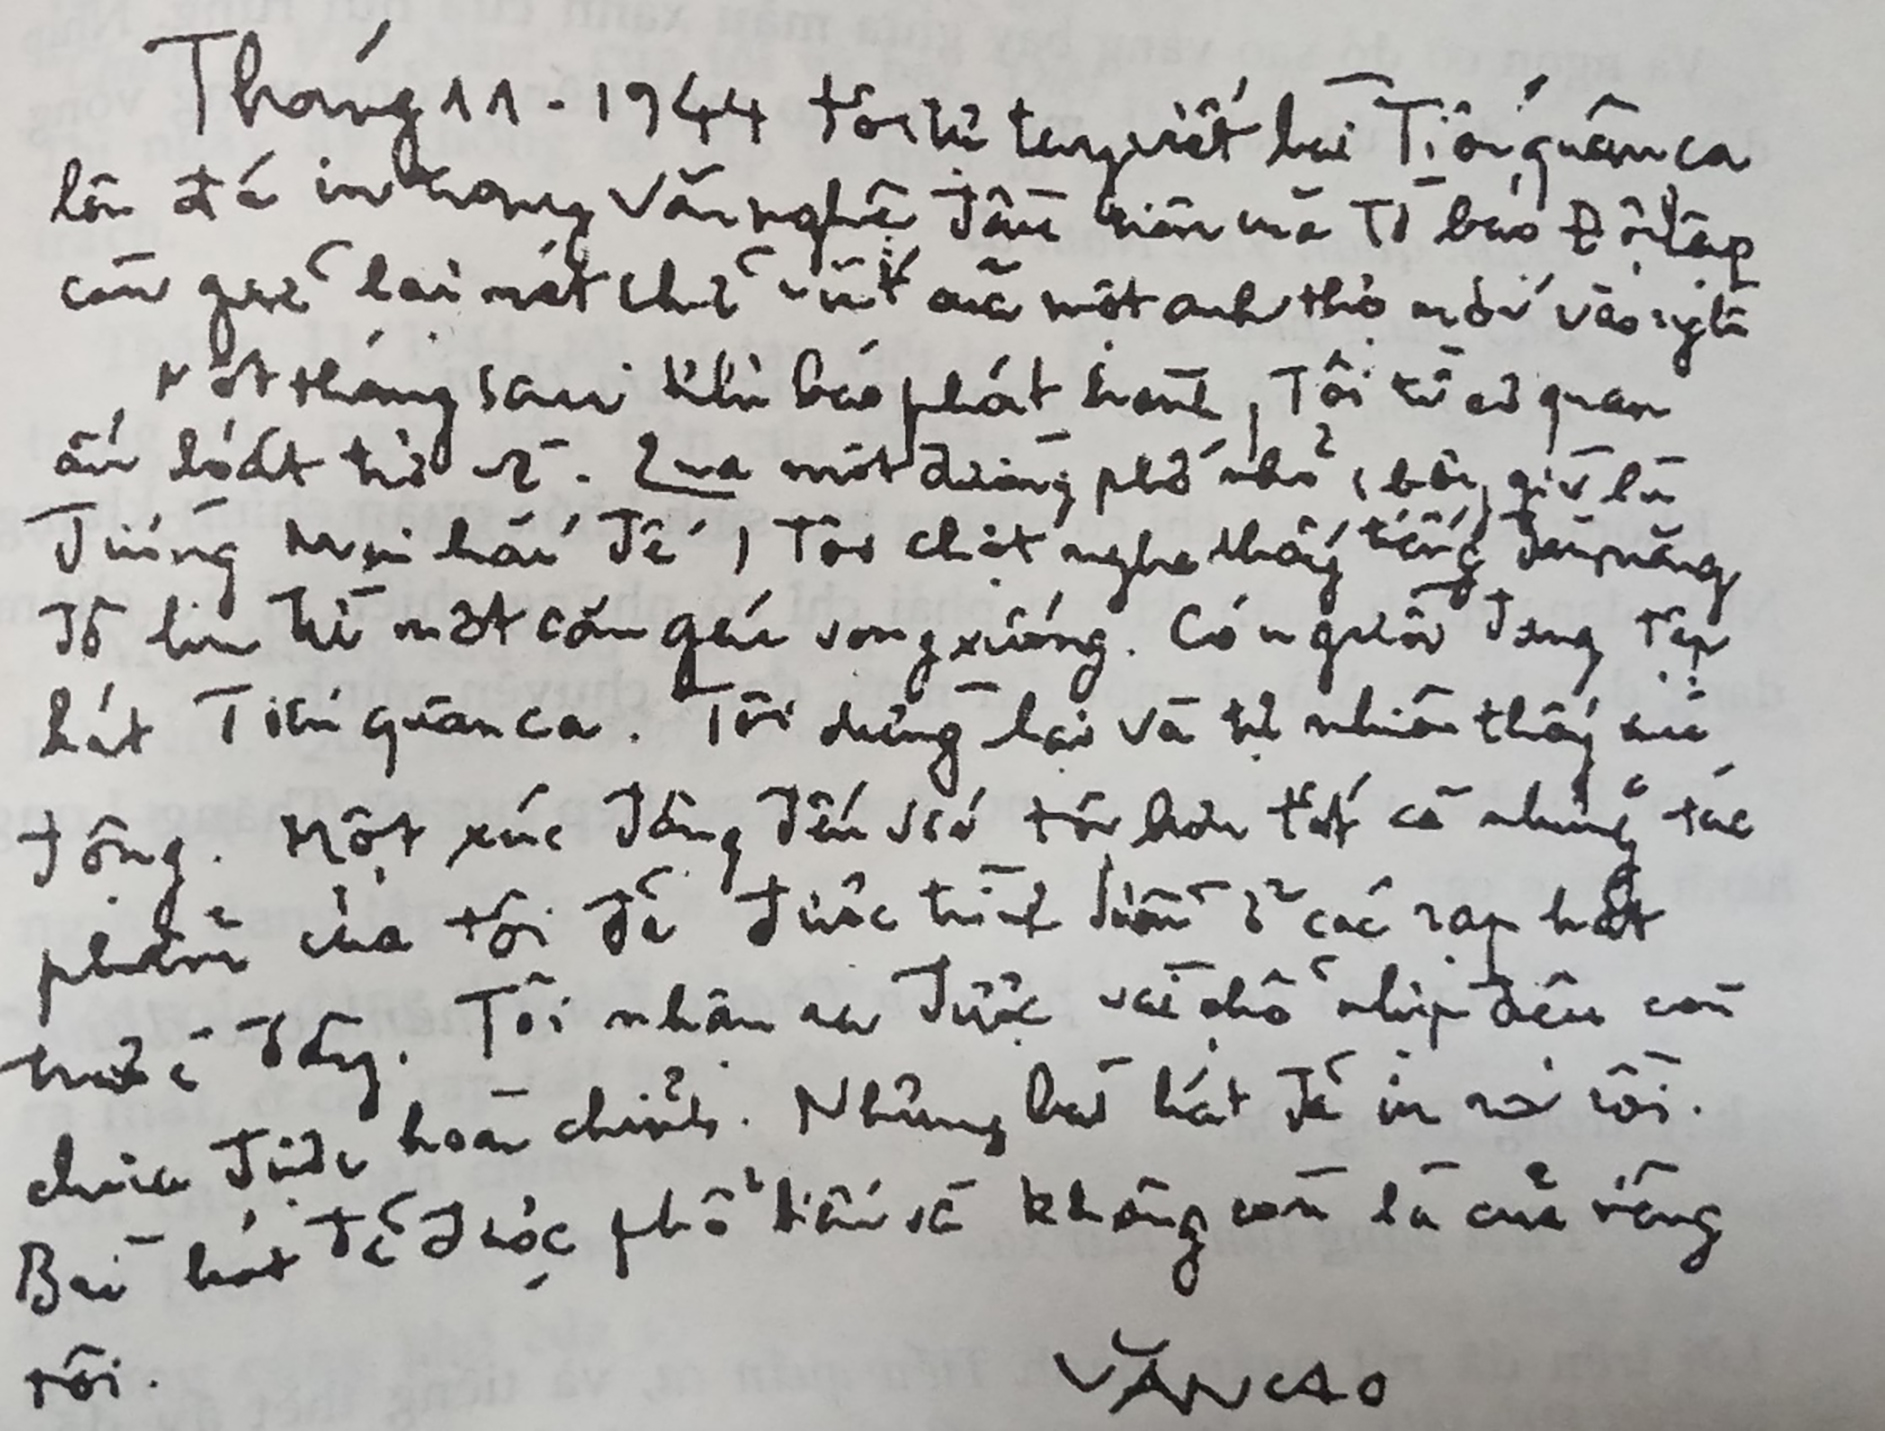 Tháng 11 - 1944 tôi tự tay viết bài Tiến quân ca
lên đá in trong văn nghệ đầu tiên mà tờ báo Độc lập
còn giữ lại nét chữ viết của một anh thợ mới vào nghề
Một tháng sau khi báo phát hành, Tôi từ cơ quan
ấn loát trở về. Qua một đường phố nhỏ, bây giờ là
đường Mai hắc đế, Tôi chợt nghe thấy tiếng đàn măng
đô lin từ một căn gác vọng xuống. Có người đang tập
hát Tiến quân ca. Tôi dừng lại và tự nhiên thấy xúc
động. Một xúc động đến với tôi hơn tất cả những tác
phẩm của tôi đã được trình diễn ở các rạp hát
trước đây. Tôi nhận ra được vài chỗ nhịp điệu còn
chưa được hoàn chỉnh. Nhưng bài hát đã in ra rồi.
Bài hát đã được phổ biến và không còn là của riêng
rồi.
VĂN CAO